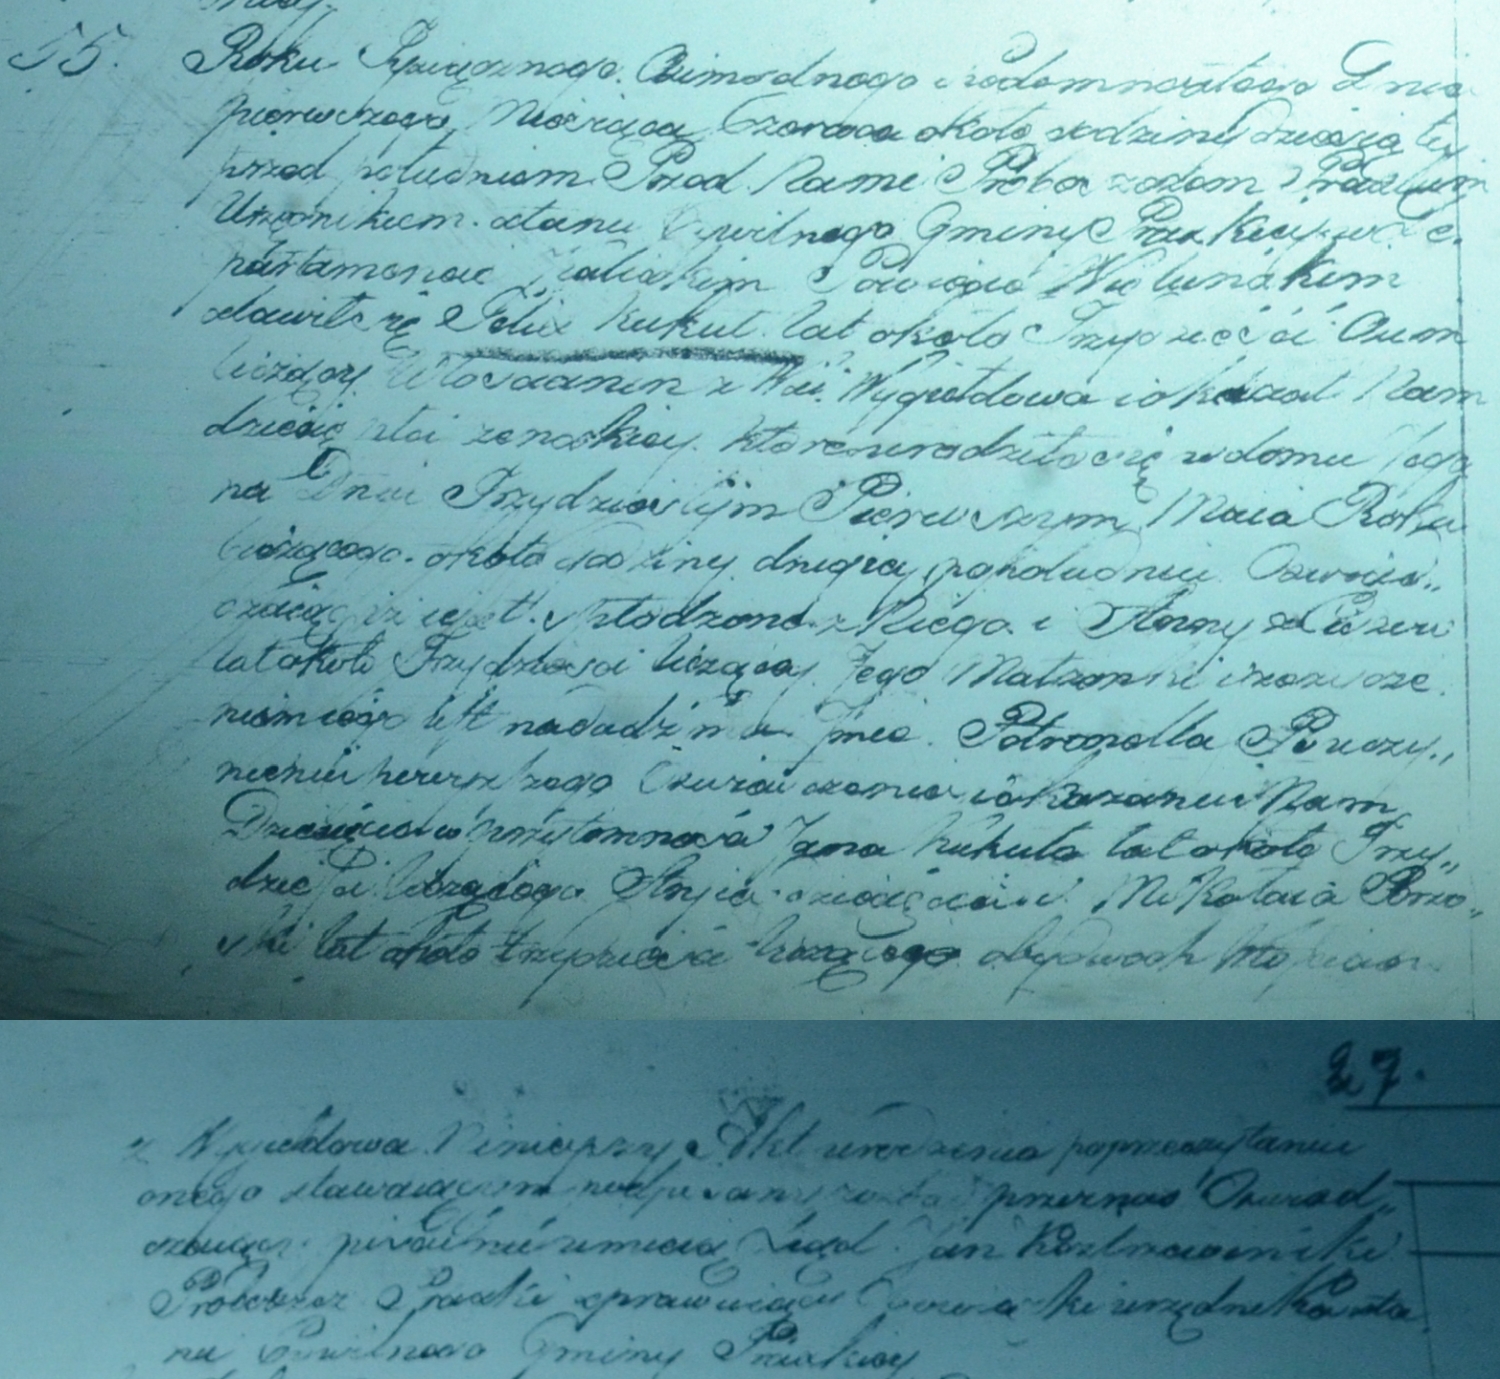 55. Roku Tysiącznego Osimsednego i siedemnastego Dnia
pierwszego Miesiąca Czerwca około godziny dziesią tey
przed południem Przed Nami Proboszczem Praskim
Urzędnikiem stanu Cywilnego Gminy Praszkiey w De.
partamencie Kaliskim Powiecie Wieluńskim
stawił się Felix Kukuł lat około Trzydzieści Osm
liczący Włościanin z Wsi Wygiełdowa i okazał Nam
dziecię płci zenskiey które urodziło się w domu Jego
na Dniu Trzydziestym Pierwszym Maia Roku
bieżącego około godziny drugiey po południu Oswiad„
czaiąc iż iest spłodzone z Niego i Anny z
lat około Trzydziesci liczącey Jego Małzonki i życze
niem iego iest nadadz mu Jmie Petronella Po uczy„
nieniu powyższego Oswiadczenia i okazaniu Nam
Dziecięcia w przytomności Jana Kukuła lat około Trzy„
dzieści liczącego Stryia dziecięcia i Mikołaia
ski lat około trzydzieści liczącego obydwoch Włościan
27.
z Wygiełdowa Ninieyszy Akt urodzenia po przeczytaniu
onego stawaiącym podpisany został przez nas Oswiad„
czaiący pisać nie umieią Xiądz Jan
Proboszcz Praszki sprawuiący Obowiązki urzędnika sta
nu Cywilnego Gminy Praszkiey